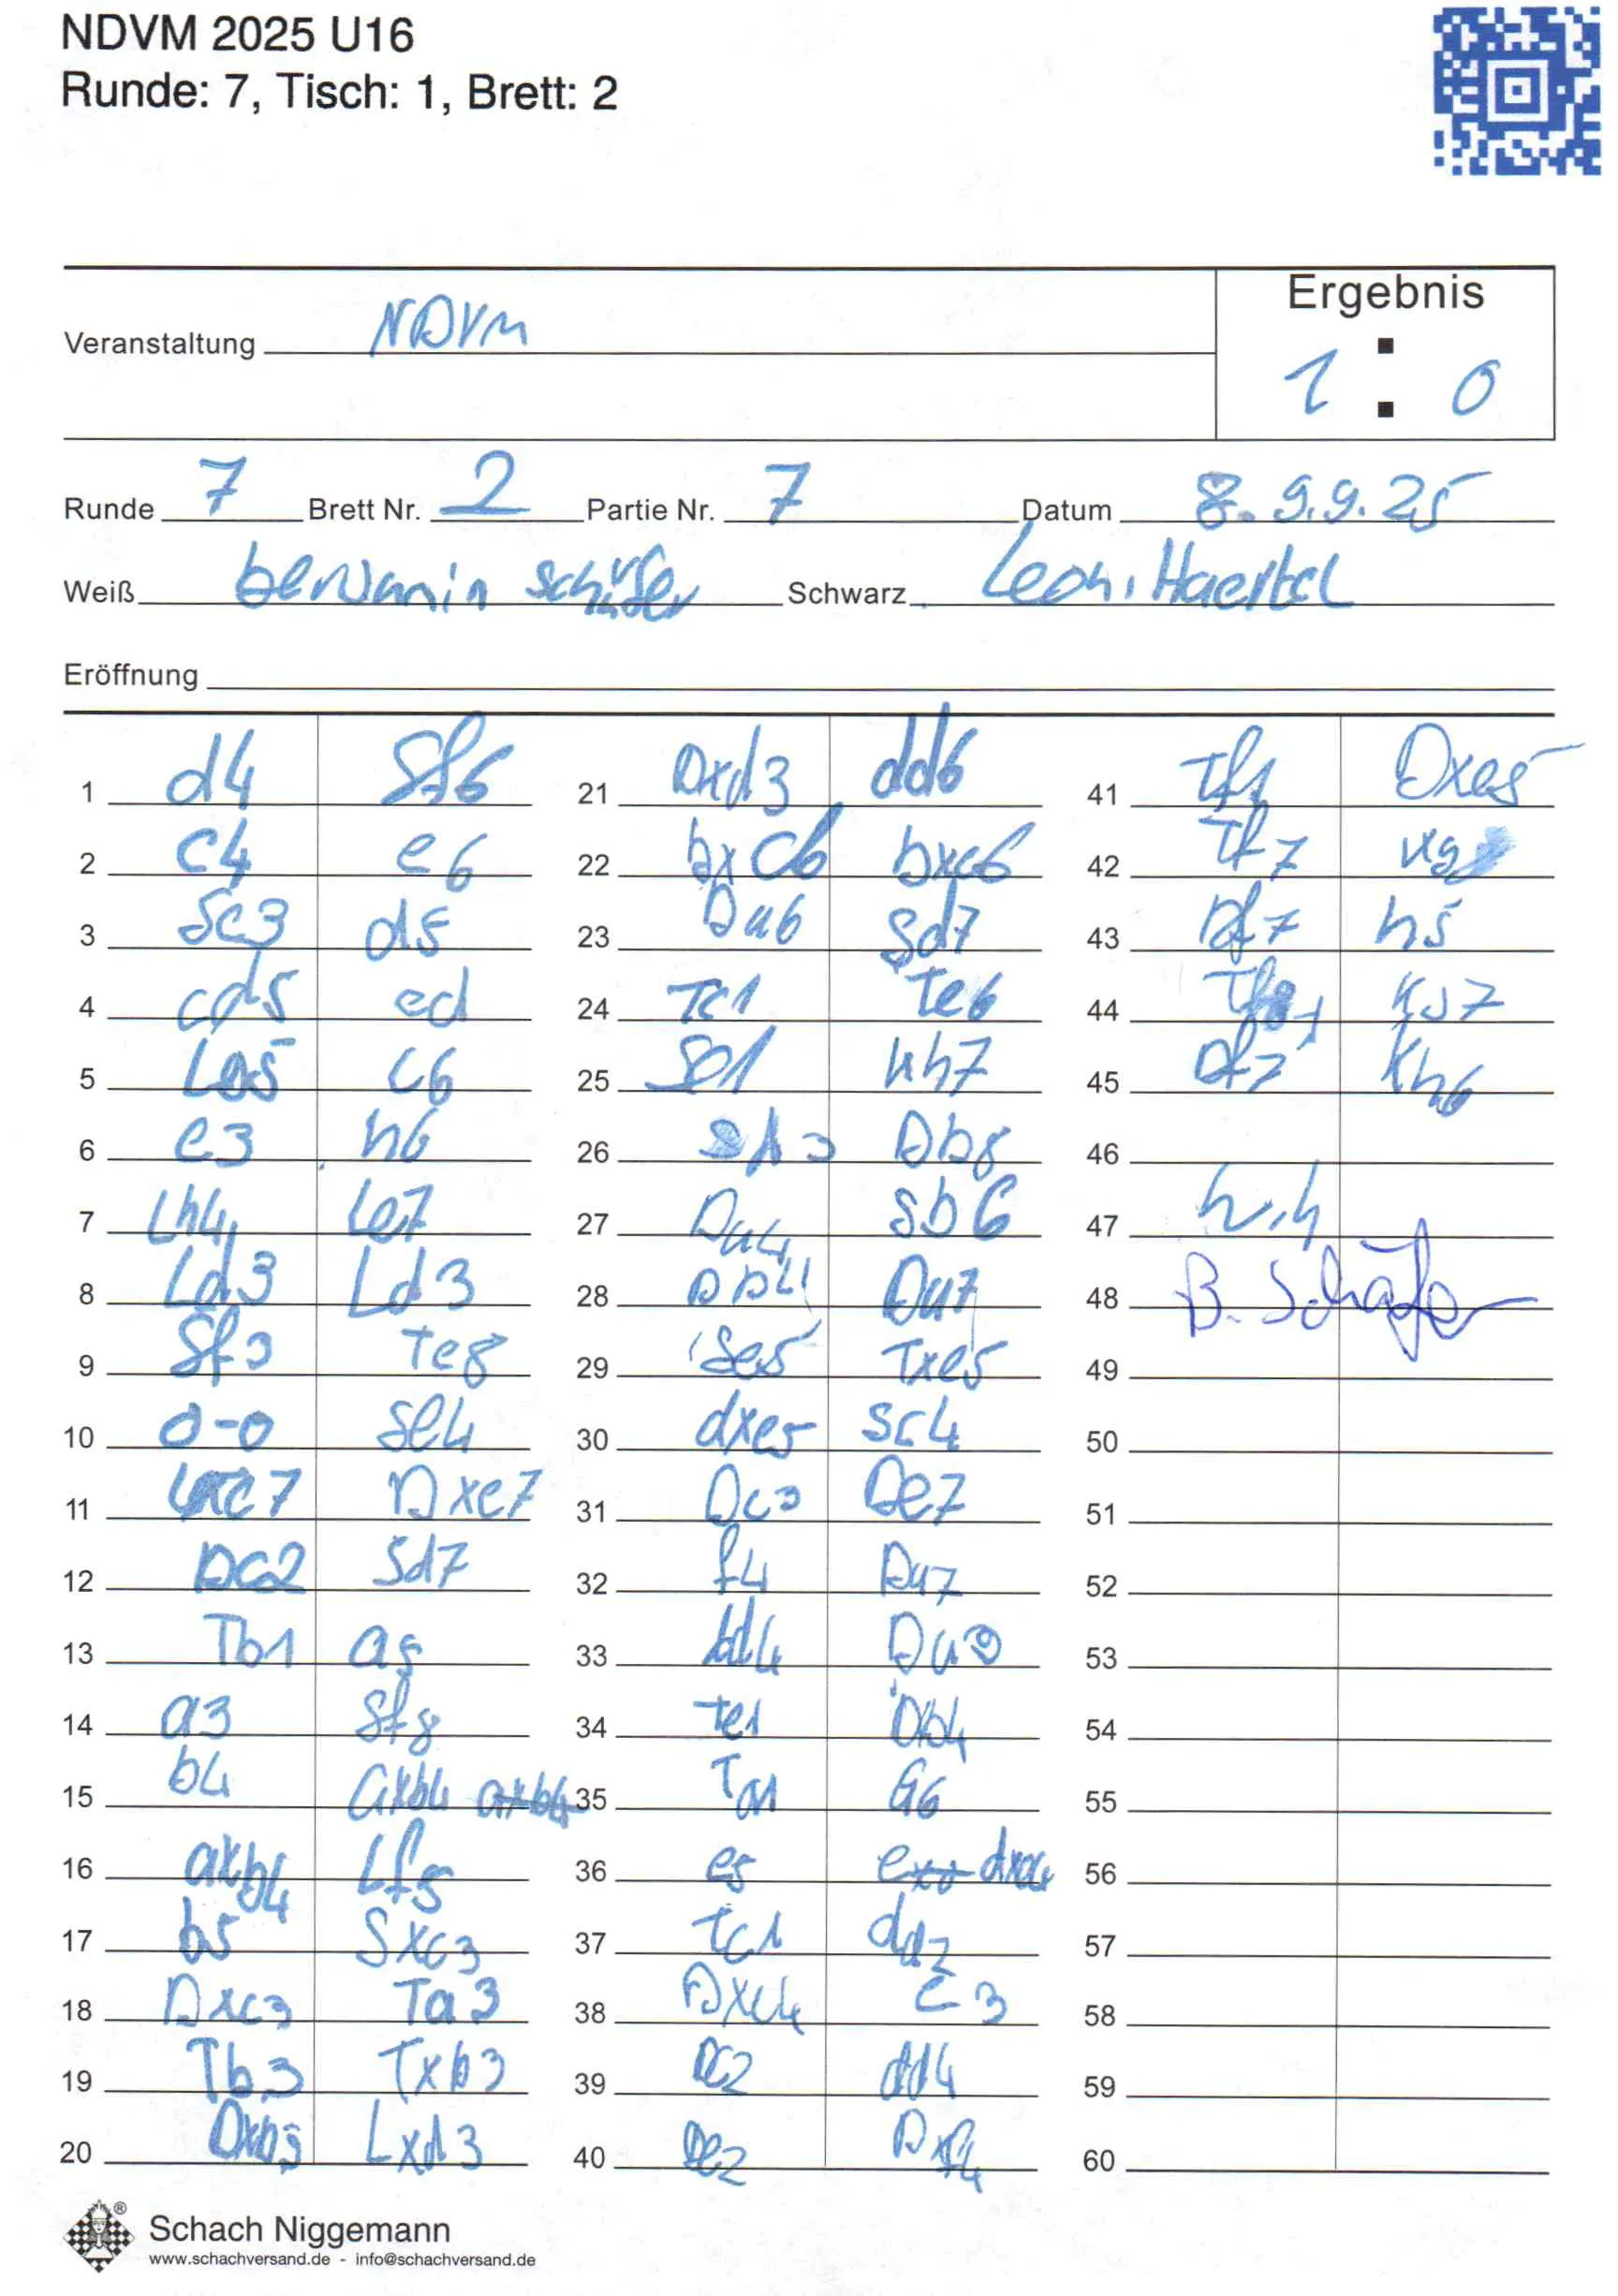 NDVM 2025 U16
Runde: 7, Tisch: 1, Brett: 2
Ergebnis
Veranstaltung NDVM
1 : 0
Runde 7 Brett Nr. 2 Partie Nr. 7 Datum 8. 9.9.25
Weiß benjamin schäfer Schwarz Leon. Haertel
Eröffnung
1 d4 Sf6 21 Dxd3 dd6 41 Tf1 Dxe5
2 c4 e6 22 bxC6 bxc6 42 Tf7
3 Sc3 d5 23 Da6 Sd7 43 Df7 h5
4 cd5 ed 24 Tc1 Te6 44 KJ7
5 c6 25 Kh7 45 Df7 Kh6
6 e3 h6 26 Db8 46
7 Lh4 Le7 27 Da4 Sb6 47
8 Ld3 Ld3 28 Db4 Da7 48 B. Schäfer
9 Sf3 Te8 29 Se5 Txe5 49
10 0-0 Se4 30 dxe5 Sc4 50
11 Dxe7 31 Dc3 De7 51
12 Dc2 Sd7 32 f4 Da7 52
13 Tb1 a5 33 53
14 a3 Sf8 34 Te1 Db4 54
15 b4 axb4 axb4 35 G6 55
16 axb4 Lf5 36 e5 56
17 b5 Sxc3 37 Tc1 dd2 57
18 Dxc3 Ta3 38 Dxc4 c3 58
19 Tb3 Txb3 39 Dc2 dd4 59
20 Dxb3 Lxd3 40 De2 Dxf4 60
Schach Niggemann
www.schachversand.de - info@schachversand.de